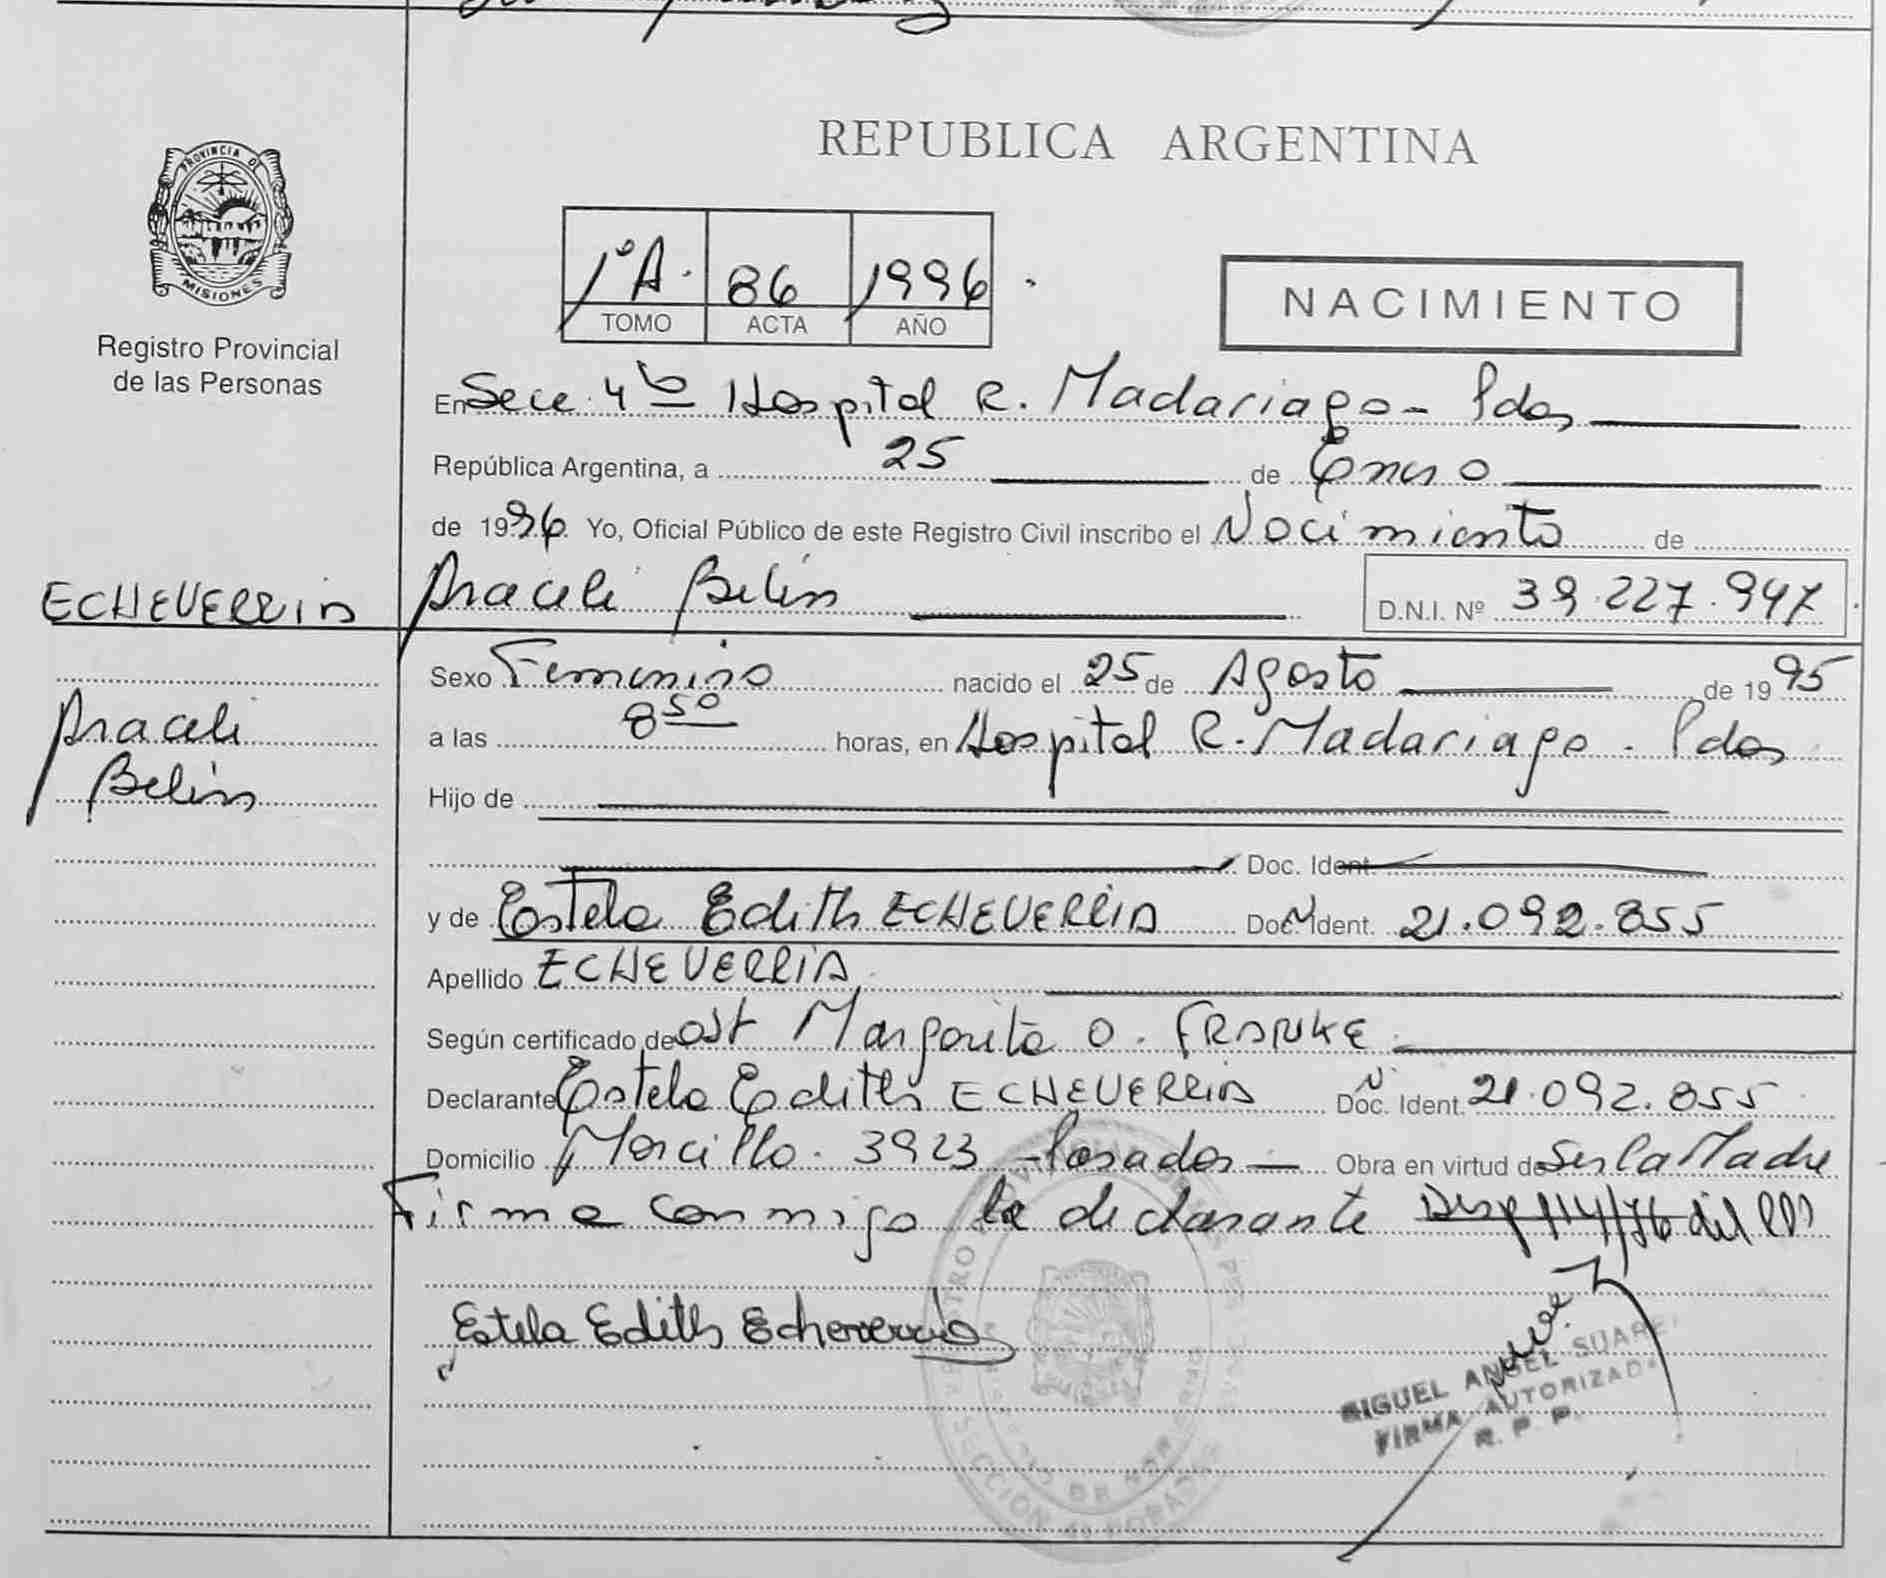 REPUBLICA ARGENTINA
PROVINCIA D
MISIONES
Registro Provincial
de las Personas
1ºA. 86 1996
TOMO ACTA AÑO
NACIMIENTO
En Secc 4ta Hospital R. Madariaga - Pdas
República Argentina, a 25 de Enero
de 1996 Yo, Oficial Público de este Registro Civil inscribo el Nacimiento de
ECHEVERRIA Araceli Belén D.N.I. Nº 39.227.947
Sexo Femenino nacido el 25 de Agosto de 1995
Araceli
Belén
a las 8 50 horas, en Hospital R. Madariaga - Pdas
Hijo de
Doc. Ident.
y de Estela Edith ECHEVERRIA Doc. Ident. 21.092.855
Apellido ECHEVERRIA
Según certificado de Ost Margarita O. FRANKE
Declarante Estela Edith ECHEVERRIA Doc. Ident. 21.092.855
Domicilio Morcillo. 3923 - Posadas Obra en virtud de Ser la Madre
Firma conmigo la declarante Disp 114/76 del RPP
Estela Edith Echeverria
MIGUEL ANGEL SUAREZ
FIRMA AUTORIZADA
R. P. P.